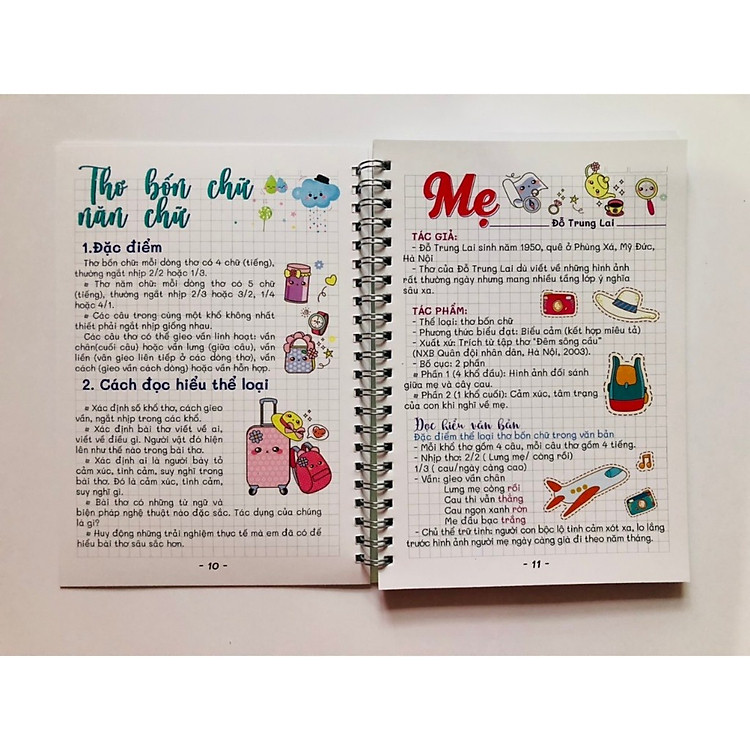 Thơ bốn chữ
năm chữ
1.Đặc điểm
Thơ bốn chữ: mỗi dòng thơ có 4 chữ (tiếng),
thường ngắt nhịp 2/2 hoặc 1/3.
Thơ năm chữ: mỗi dòng thơ có 5 chữ
(tiếng), thường ngắt nhịp 2/3 hoặc 3/2, 1/4
hoặc 4/1.
Các câu trong cùng một khổ không nhất
thiết phải ngắt nhịp giống nhau.
Các câu thơ có thể gieo vần linh hoạt: vần
chân(cuối câu) hoặc vần lưng (giữa câu), vần
liền (vần gieo liên tiếp ở các dòng thơ), vần
cách (gieo vần cách dòng) hoặc vần hỗn hợp.
2. Cách đọc hiểu thể loại
Xác định số khổ thơ, cách gieo
vần, ngắt nhịp trong các khổ.
Xác định bài thơ viết về ai,
viết về điều gì. Người vật đó hiện
lên như thế nào trong bài thơ.
Xác định ai là người bày tỏ
cảm xúc, tình cảm, suy nghĩ trong
bài thơ. Đó là cảm xúc, tình cảm,
suy nghĩ gì.
Bài thơ có những từ ngữ và
biện pháp nghệ thuật nào đặc sắc. Tác dụng của chúng
là gì?
Huy động những trải nghiệm thực tế mà em đã có để
hiểu bài thơ sâu sắc hơn.
- 10 -
Mẹ
Đỗ Trung Lai
TÁC GIẢ:
- Đỗ Trung Lai sinh năm 1950, quê ở Phùng Xá, Mỹ Đức,
Hà Nội
- Thơ của Đỗ Trung Lai dù viết về những hình ảnh
rất thường ngày nhưng mang nhiều tầng lớp ý nghĩa
sâu xa.
TÁC PHẨM:
- Thể loại: thơ bốn chữ
- Phương thức biểu đạt: Biểu cảm (kết hợp miêu tả)
- Xuất xứ: Trích từ tập thơ "Đêm sông cầu"
(NXB Quân đội nhân dân, Hà Nội, 2003).
- Bố cục: 2 phần
Phần 1 (4 khổ đầu): Hình ảnh đối sánh
giữa mẹ và cây cau.
Phần 2 (1 khổ cuối): Cảm xúc, tâm trạng
của con khi nghĩ về mẹ.
Đọc hiểu văn bản
Đặc điểm thể loại thơ bốn chữ trong văn bản
- Mỗi khổ thơ gồm 4 câu, mỗi câu thơ gồm 4 tiếng.
- Nhịp thơ: 2/2 ( Lưng mẹ/ còng rồi)
1/3 ( cau/ngày càng cao)
- Vần: gieo vần chân
Lưng mẹ còng rồi
Cau thì vẫn thẳng
Cau ngọn xanh rờn
Mẹ đầu bạc trắng
- Chủ thể trữ tình: người con bộc lộ tình cảm xót xa, lo lắng
trước hình ảnh người mẹ ngày càng già đi theo năm tháng.
- 11 -